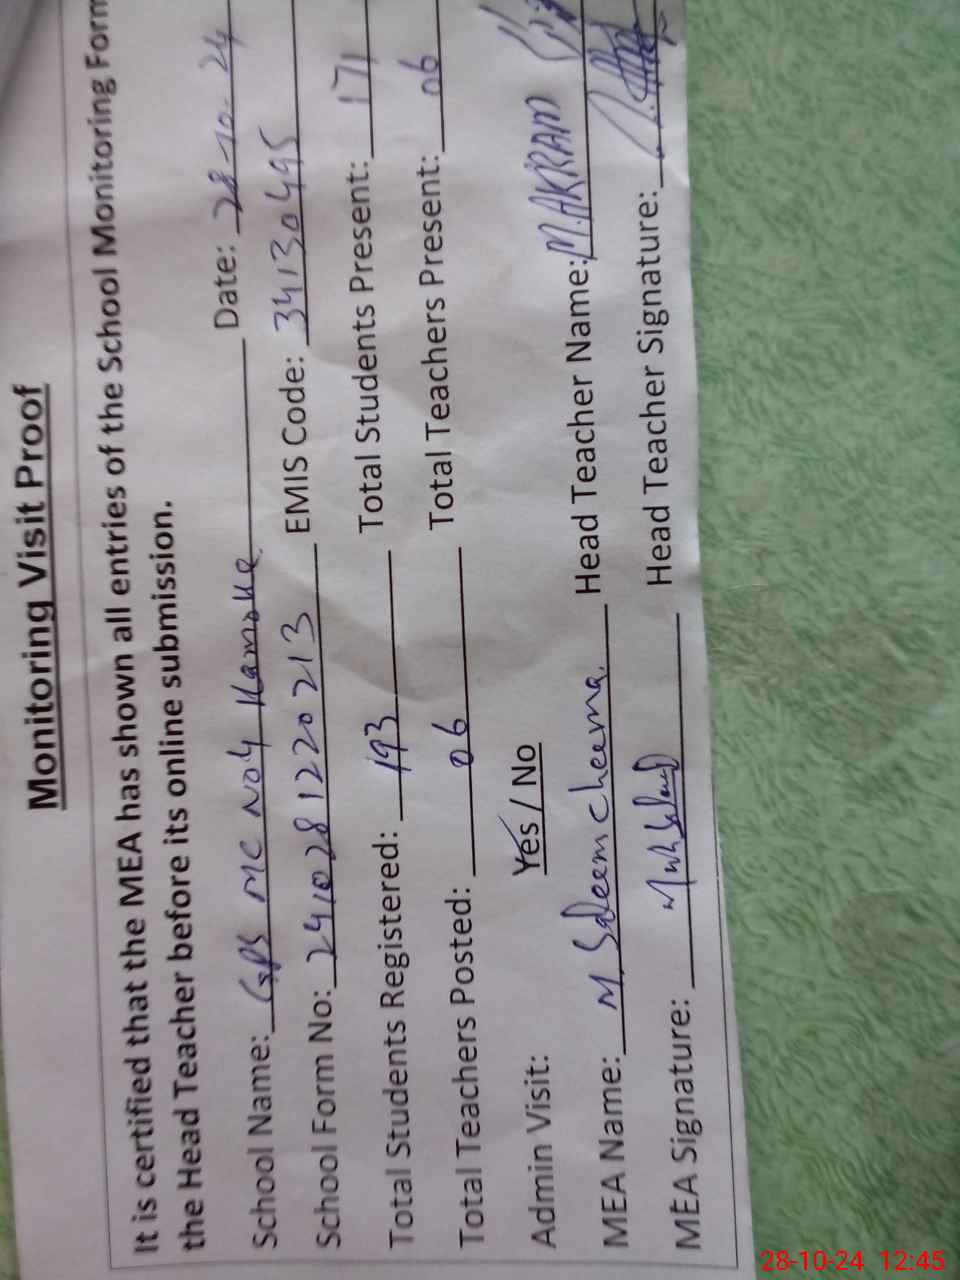 Monitoring Visit Proof
It is certified that the MEA has shown all entries of the School Monitoring Form
the Head Teacher before its online submission.
School Name: GPS MC No4 Kamoke Date: 28-10-24
School Form No: 2410281220213 EMIS Code: 34130495
Total Students Registered: 193 Total Students Present: 171
Total Teachers Posted: 06 Total Teachers Present: 06
Admin Visit: Yes / No
MEA Name: M Saleem Cheema. Head Teacher Name: M.AKRAM
MEA Signature: Head Teacher Signature:
28-10-24 12:45